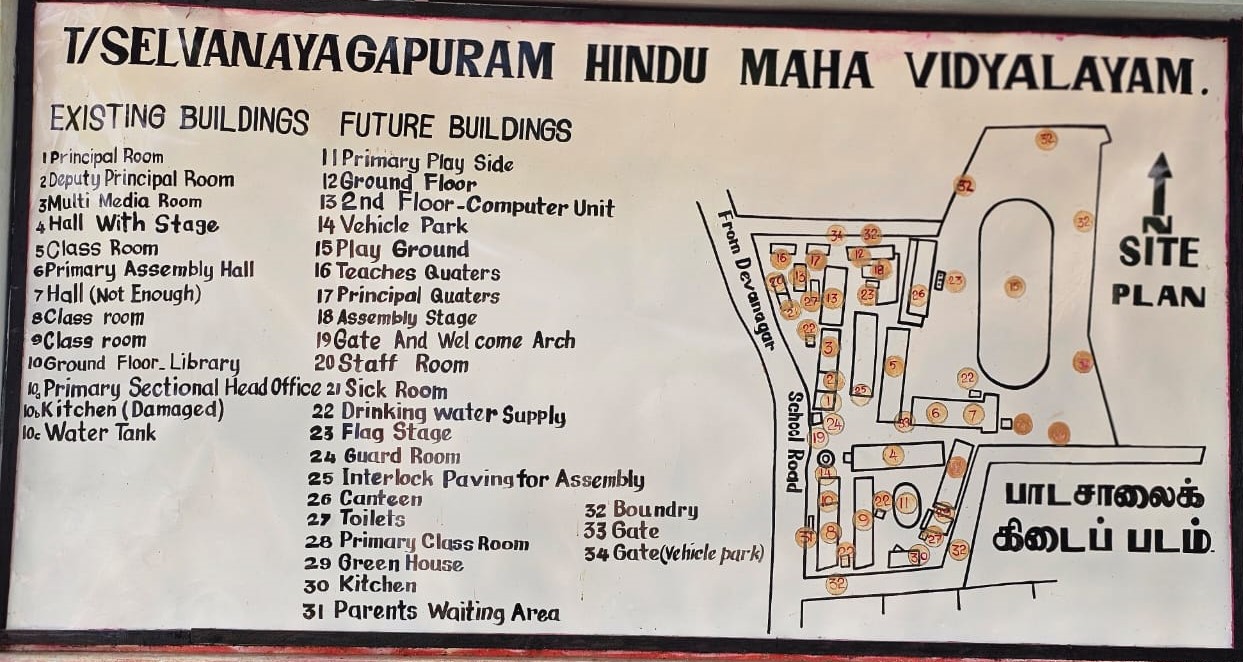 T/SELVANAYAGAPURAM HINDU MAHA VIDYALAYAM.
EXISTING BUILDINGS
1 Principal Room
2 Deputy Principal Room
3 Multi Media Room
4 Hall With Stage
5 Class Room
6 Primary Assembly Hall
7 Hall (Not Enough)
8 Class room
9 Class room
10 Ground Floor_Library
10a Primary Sectional Head Office
10b Kitchen (Damaged)
10c Water Tank
FUTURE BUILDINGS
11 Primary Play Side
12 Ground Floor
13 2nd Floor-Computer Unit
14 Vehicle Park
15 Play Ground
16 Teaches Quaters
17 Principal Quaters
18 Assembly Stage
19 Gate And Wel come Arch
20 Staff Room
21 Sick Room
22 Drinking water Supply
23 Flag Stage
24 Guard Room
25 Interlock Paving for Assembly
26 Canteen
27 Toilets
28 Primary Class Room
29 Green House
30 Kitchen
31 Parents Waiting Area
32 Boundry
33 Gate
34 Gate(Vehicle park)
From Devanagar
School Road
N
SITE
PLAN
பாடசாலைக்
கிடைப் படம்.
32
32
32
34
32
16
17
12
18
13
23
26
23
13
27
22
3
5
2
25
1
22
24
6
7
19
4
14
10
8
9
22
11
27
32
32